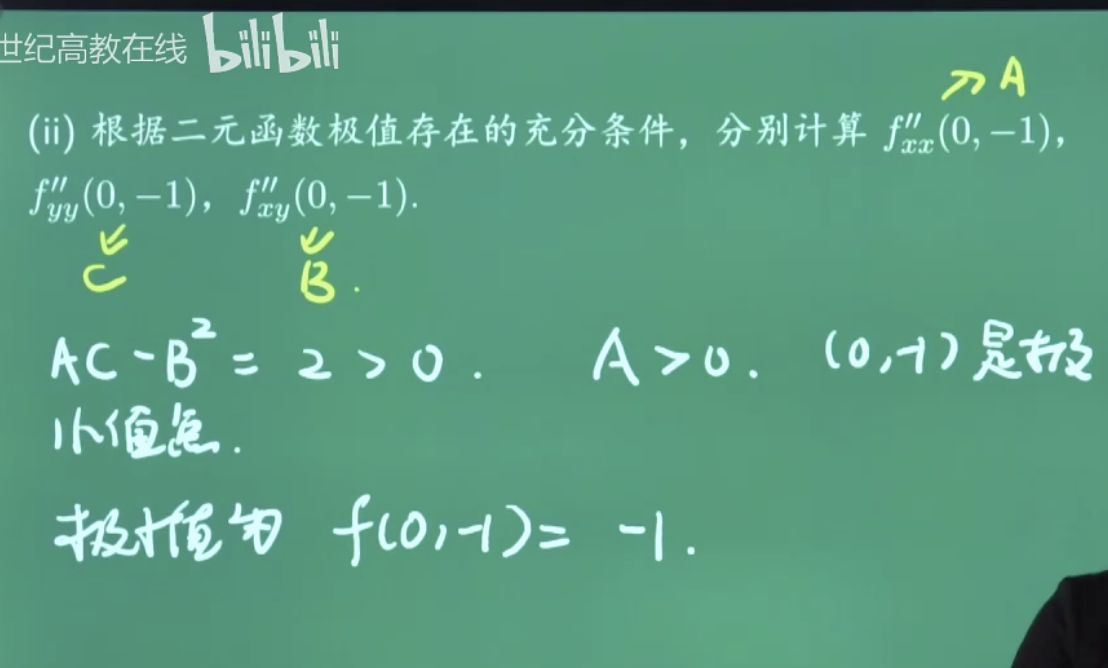 世纪高教在线 bilibili
A
(ii) 根据二元函数极值存在的充分条件，分别计算 f''xx(0, −1),
f''yy(0, −1), f''xy(0, −1).
C B.
AC−B² = 2 > 0. A > 0. (0,-1) 是极
小值点.
极小值为 f(0,-1) = -1.